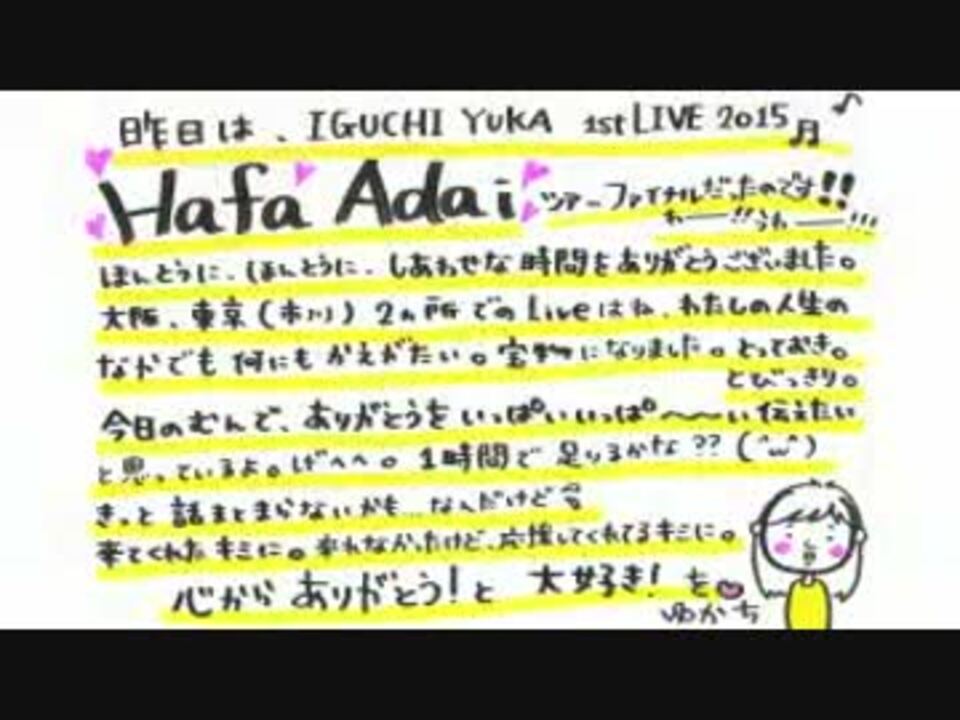 昨日は、IGUCHI YUKA 1st LIVE 2015
Hafa Adai ツアーファイナルだったのです!!
わーー!!うわーー!!!
ほんとうに、ほんとうに、しあわせな時間をありがとうございました。
大阪、東京(市川)2ヵ所でのLiveはね、わたしの人生の
なかでも何にもかえがたい。宝物になりました。とっておき。
とびっきり。
今日のむ〜んで、ありがとうをいっぱいいっぱ〜〜い伝えたい
と思っているよ。げへへ。1時間で足りるかな??(^ω^)
きっと話まとまらないかも…なんだけど
来てくれたキミに。来れなかったけど、応援してくれてるキミに。
心からありがとう!と大好き!を
ゆかち